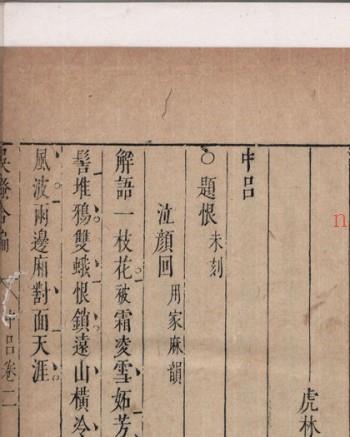 虎林
中呂
○題恨 未刻
泣顏回 用家麻韻
解語一枝花被霜凌雪妬芳
髻堆鴉雙蛾恨鎖遠山橫冷
風波兩邊廂對面天涯
吳騷合編 中呂卷二